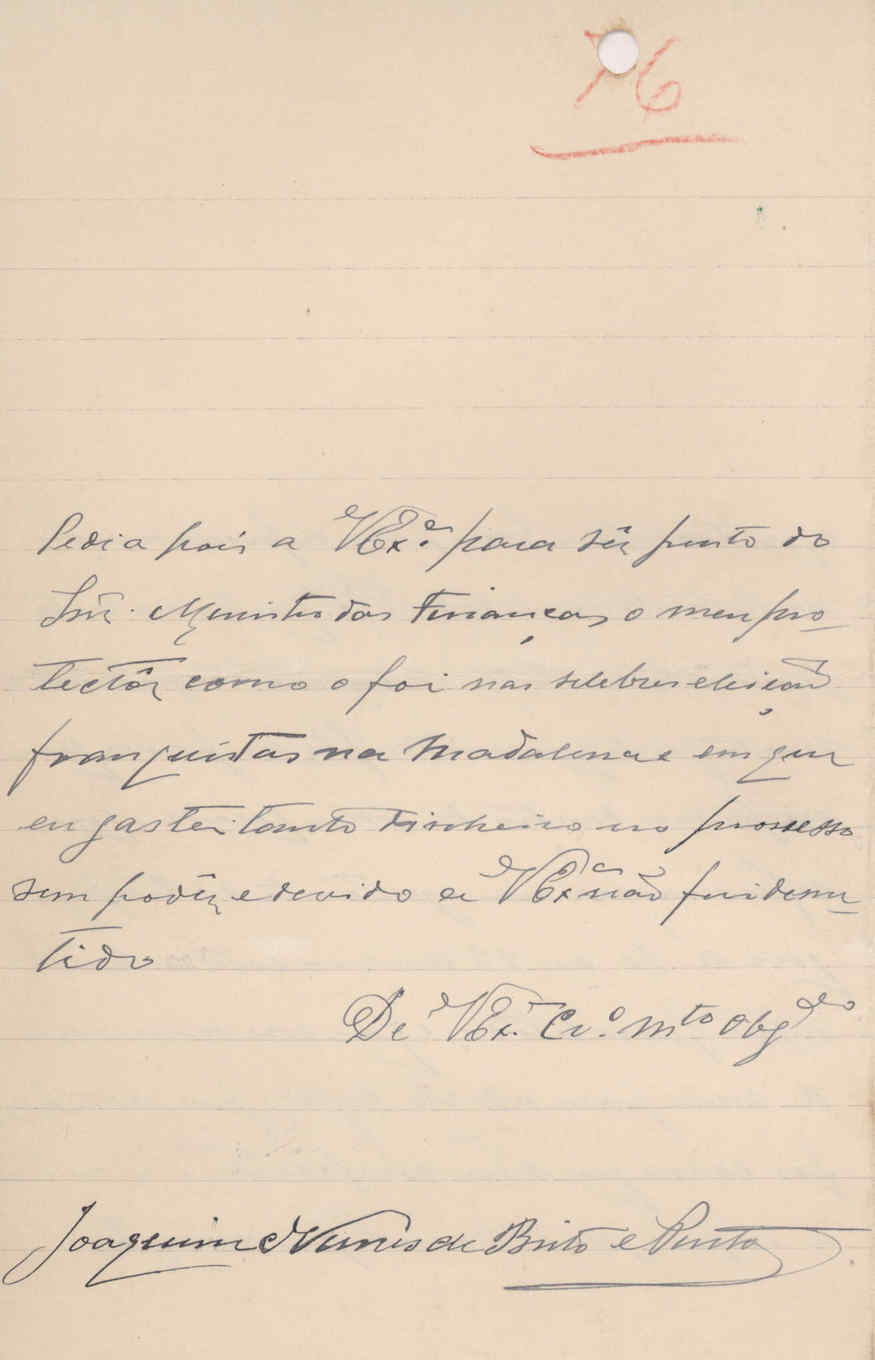 76
Pedia pois a VEx.ª para sêr junto do
Snr. Ministro das Finanças o meu pro-
tectôr como o foi nas selebres eleições
franquistas na Madalena e em que
eu gastei tanto dinheiro no prossesso
sem podêr, e devido a VExª não fui demi-
tido
De VEx.ª Cr.º Mto Obgdo
Joaquim Nunes de Brito e Pinto